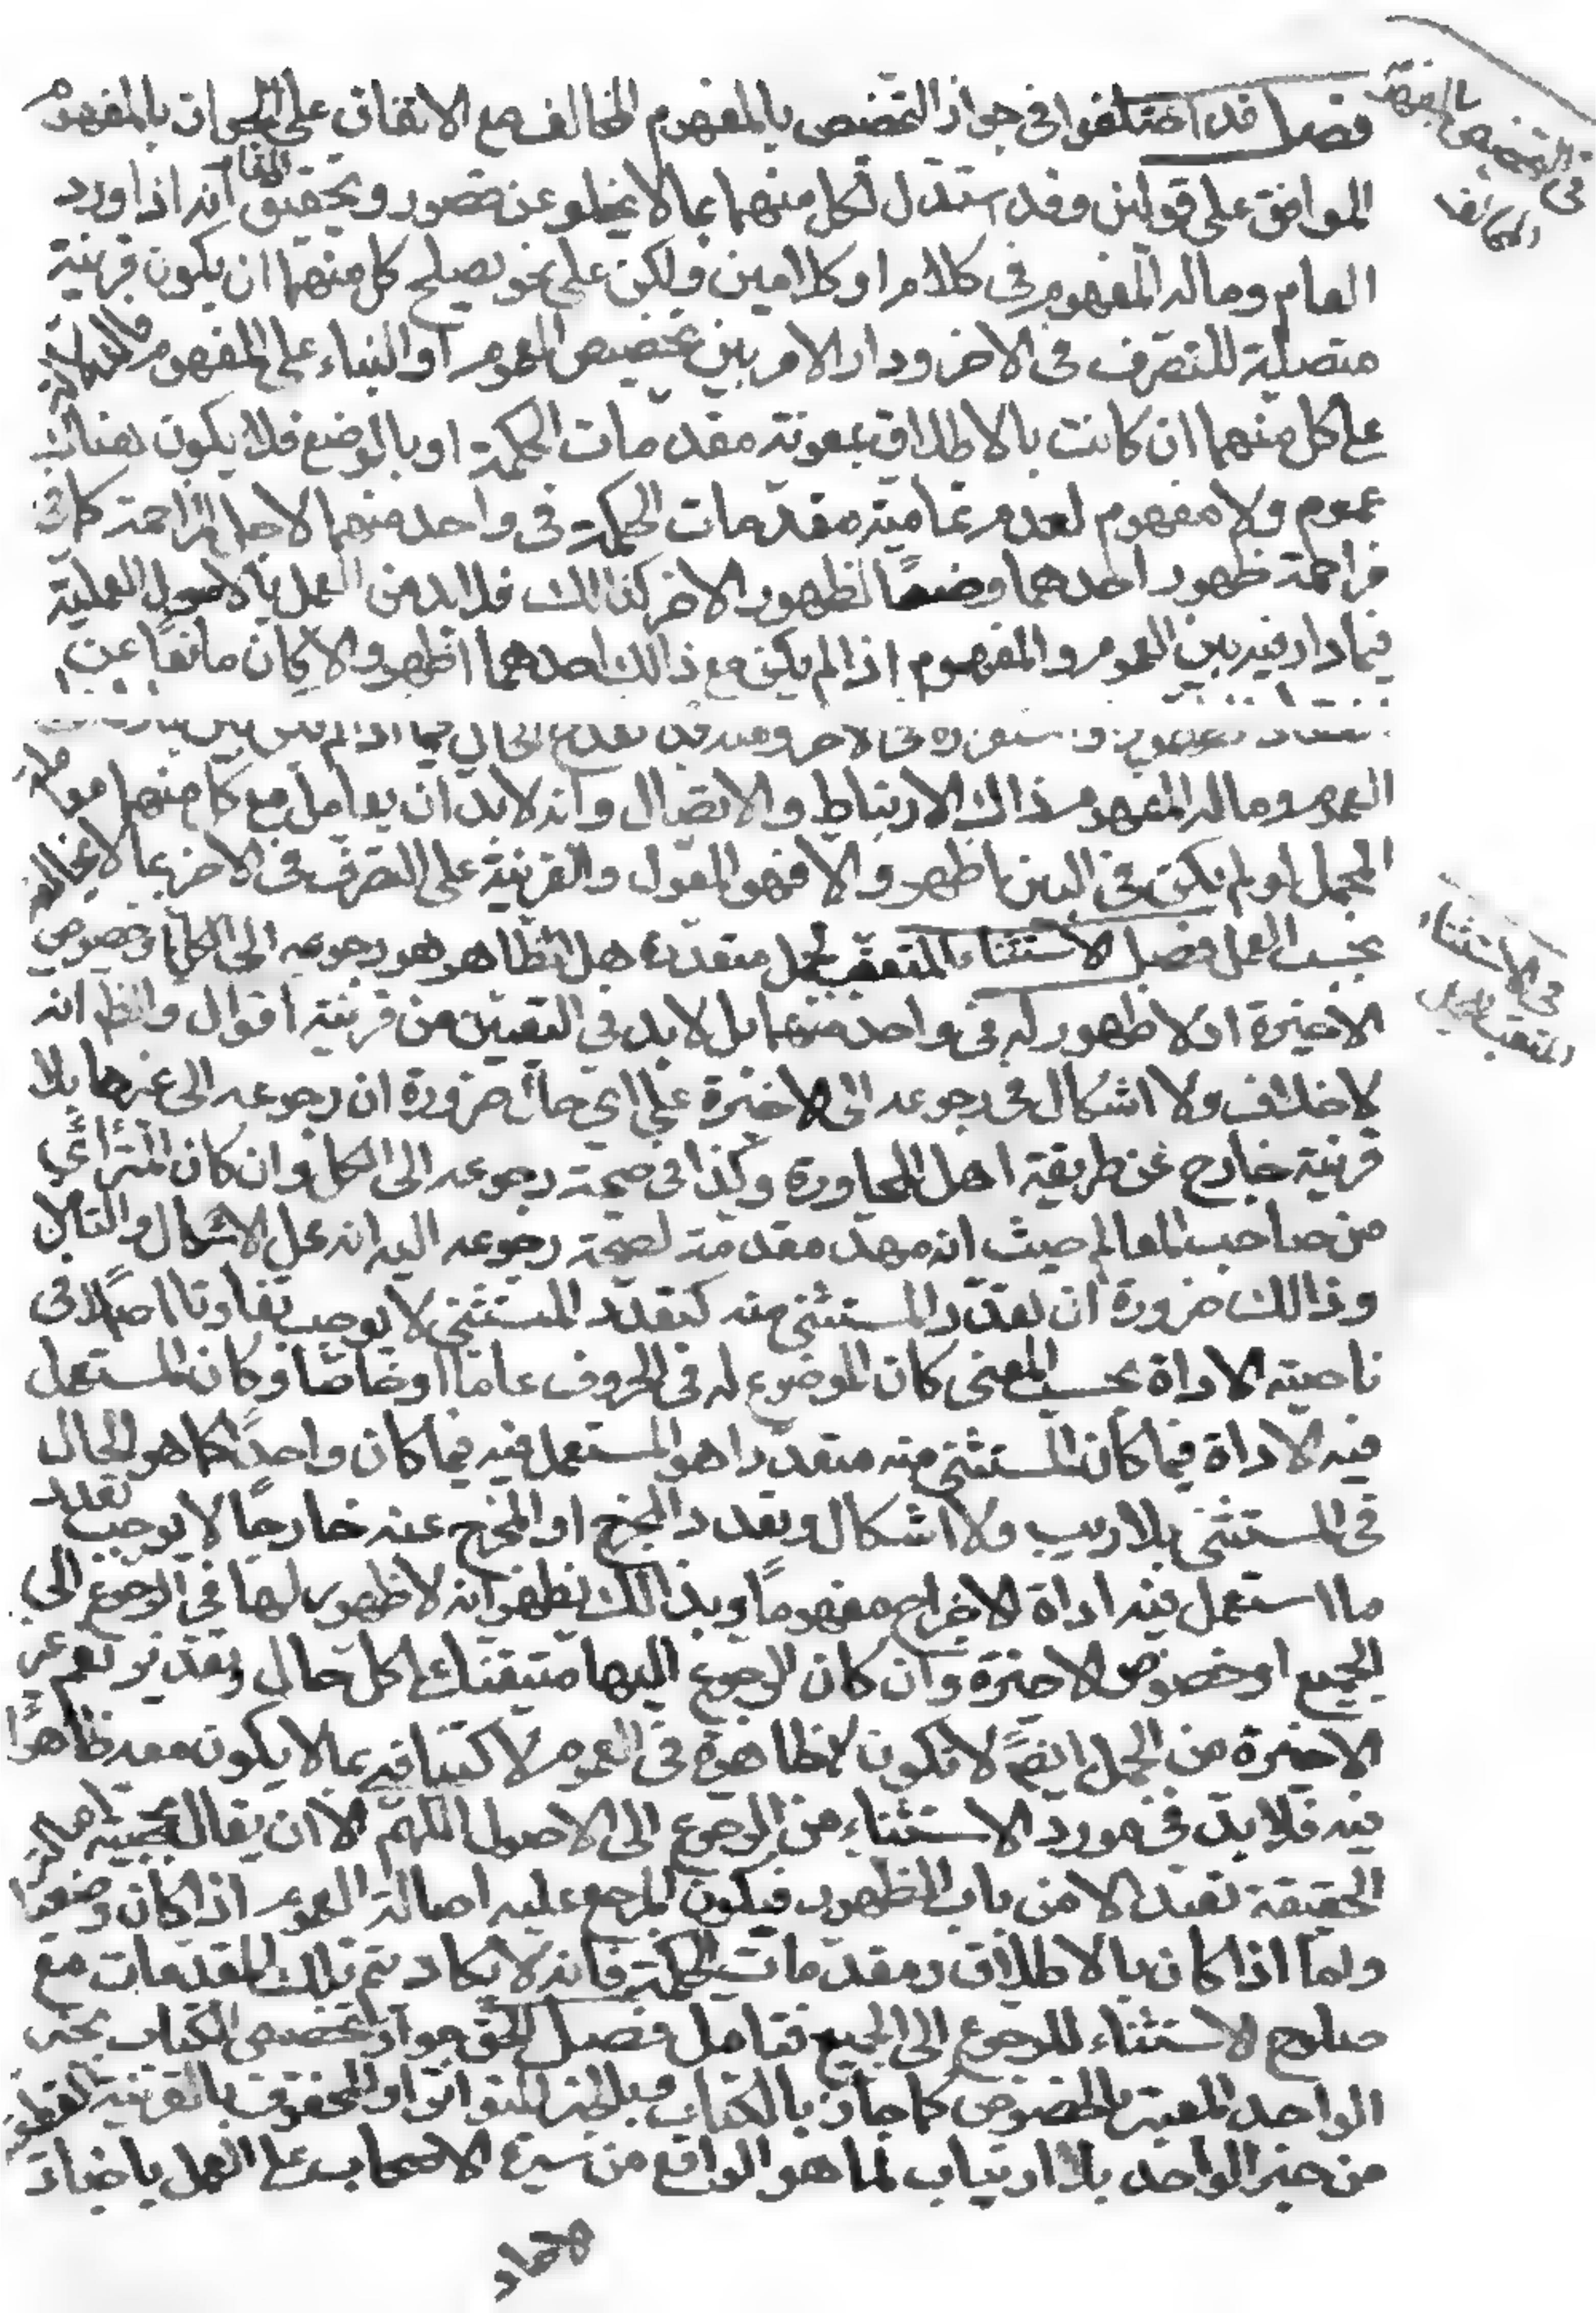 فصل قد اختلفوا فى جواز التخصيص بالمفهوم المخالف مع الاتفاق على الجواز بالمفهوم
فى التخصيص بالمفهوم المخالف
الموافق على قولين وقد استدل لكل منهما بما لا يخلو عن قصور وتحقيق المقام انه اذا ورد
العام وماله المفهوم فى كلام او كلامين ولكن على نحو يصلح كل منهما ان يكون قرينة
متصلة للتصرف فى الاخر ودار الامر بين تخصيص العموم او البناء على المفهوم فالدلالة
على كل منهما ان كانت بالاطلاق بمعونة مقدمات الحكمة او بالوضع فلا يكون هناك
عموم ولا مفهوم لعدم تمامية مقدمات الحكمة فى واحد منهما لاجل المزاحمة كما فى
مزاحمة ظهور احدهما وضعًا لظهور الاخر كذالك فلا بد من العمل بالاصول العملية
فيما دار فيه بين العموم والمفهوم اذا لم يكن مع ذالك احدهما اظهر والا كان مانعًا عن
فى الاخر ومنه قد انقدح الحال فيما اذا لم يكن بين
العموم وماله المفهوم ذاك الارتباط والاتصال وانه لا بد ان يعامل مع كل منهما معاملة
المجمل لو لم يكن فى البين اظهر والا فهو المعول والقرينة على التصرف فى الاخر بما لا يخالفه
بحسب العمل فصل الاستثناء المتعقب لجمل متعددة هل الظاهر هو رجوعه الى الكل او خصوص
فى الاستثناء المتعقب للجمل
الاخيرة او لا ظهور له فى واحد منهما بل لا بد فى التعيين من قرينة اقوال والظ انه
لا خلاف ولا اشكال فى رجوعه الى الاخيرة على اى حال ضرورة ان رجوعه الى غيرها بلا
قرينة خارج عن طريقة اهل المحاورة وكذا فى صحة رجوعه الى الكل وان كان المترائى
من صاحب المعالم حيث انه مهد مقدمة لصحة رجوعه اليه انه محل الاشكال والتامل
وذالك ضرورة ان تعدد المستثنى منه كتعدد المستثنى لا يوجب تفاوتا اصلًا فى
ناحية الاداة بحسب المعنى كان الموضوع له فى الحروف عاما او خاصا وكان المستعمل
فيه الاداة فيما كان المستثنى منه متعددا هو المستعمل فيه فيما كان واحدًا كما هو الحال
فى المستثنى بلا ريب ولا اشكال وتعدد المخرج او المخرج عنه خارجًا لا يوجب تعدد
ما استعمل فيه اداة الاخراج مفهومًا وبذالك يظهر انه لا ظهور لها فى الرجوع الى
الجميع او خصوص الاخيرة وان كان الرجوع اليها متيقنا على كل حال نعم غير
الاخيرة من الجمل ايضً لا تكون ظاهرة فى العموم لاكتنافه بما لا يكون معه ظاهرًا
فيه فلا بد فى مورد الاستثناء من الرجوع الى الاصول اللهم الا ان يقال بحجية اصالة
الحقيقة تعبدا لا من باب الظهور فيكون المرجع عليه اصالة العموم اذا كان وضعيا
واما اذا كان بالاطلاق ومقدمات الحكمة فانه لا يكاد يتم تلك المقدمات مع
صلوح الاستثناء للرجوع الى الجميع فتامل فصل الحق جواز تخصيص الكتاب بخبر
الواحد المعتبر بالخصوص كما جاز بالكتاب وبالخبر المتواتر او المحفوف بالقرينة القطعية
من خبر الواحد بلا ارتياب لما هو الواقع من سيرة الاصحاب على العمل باخبار